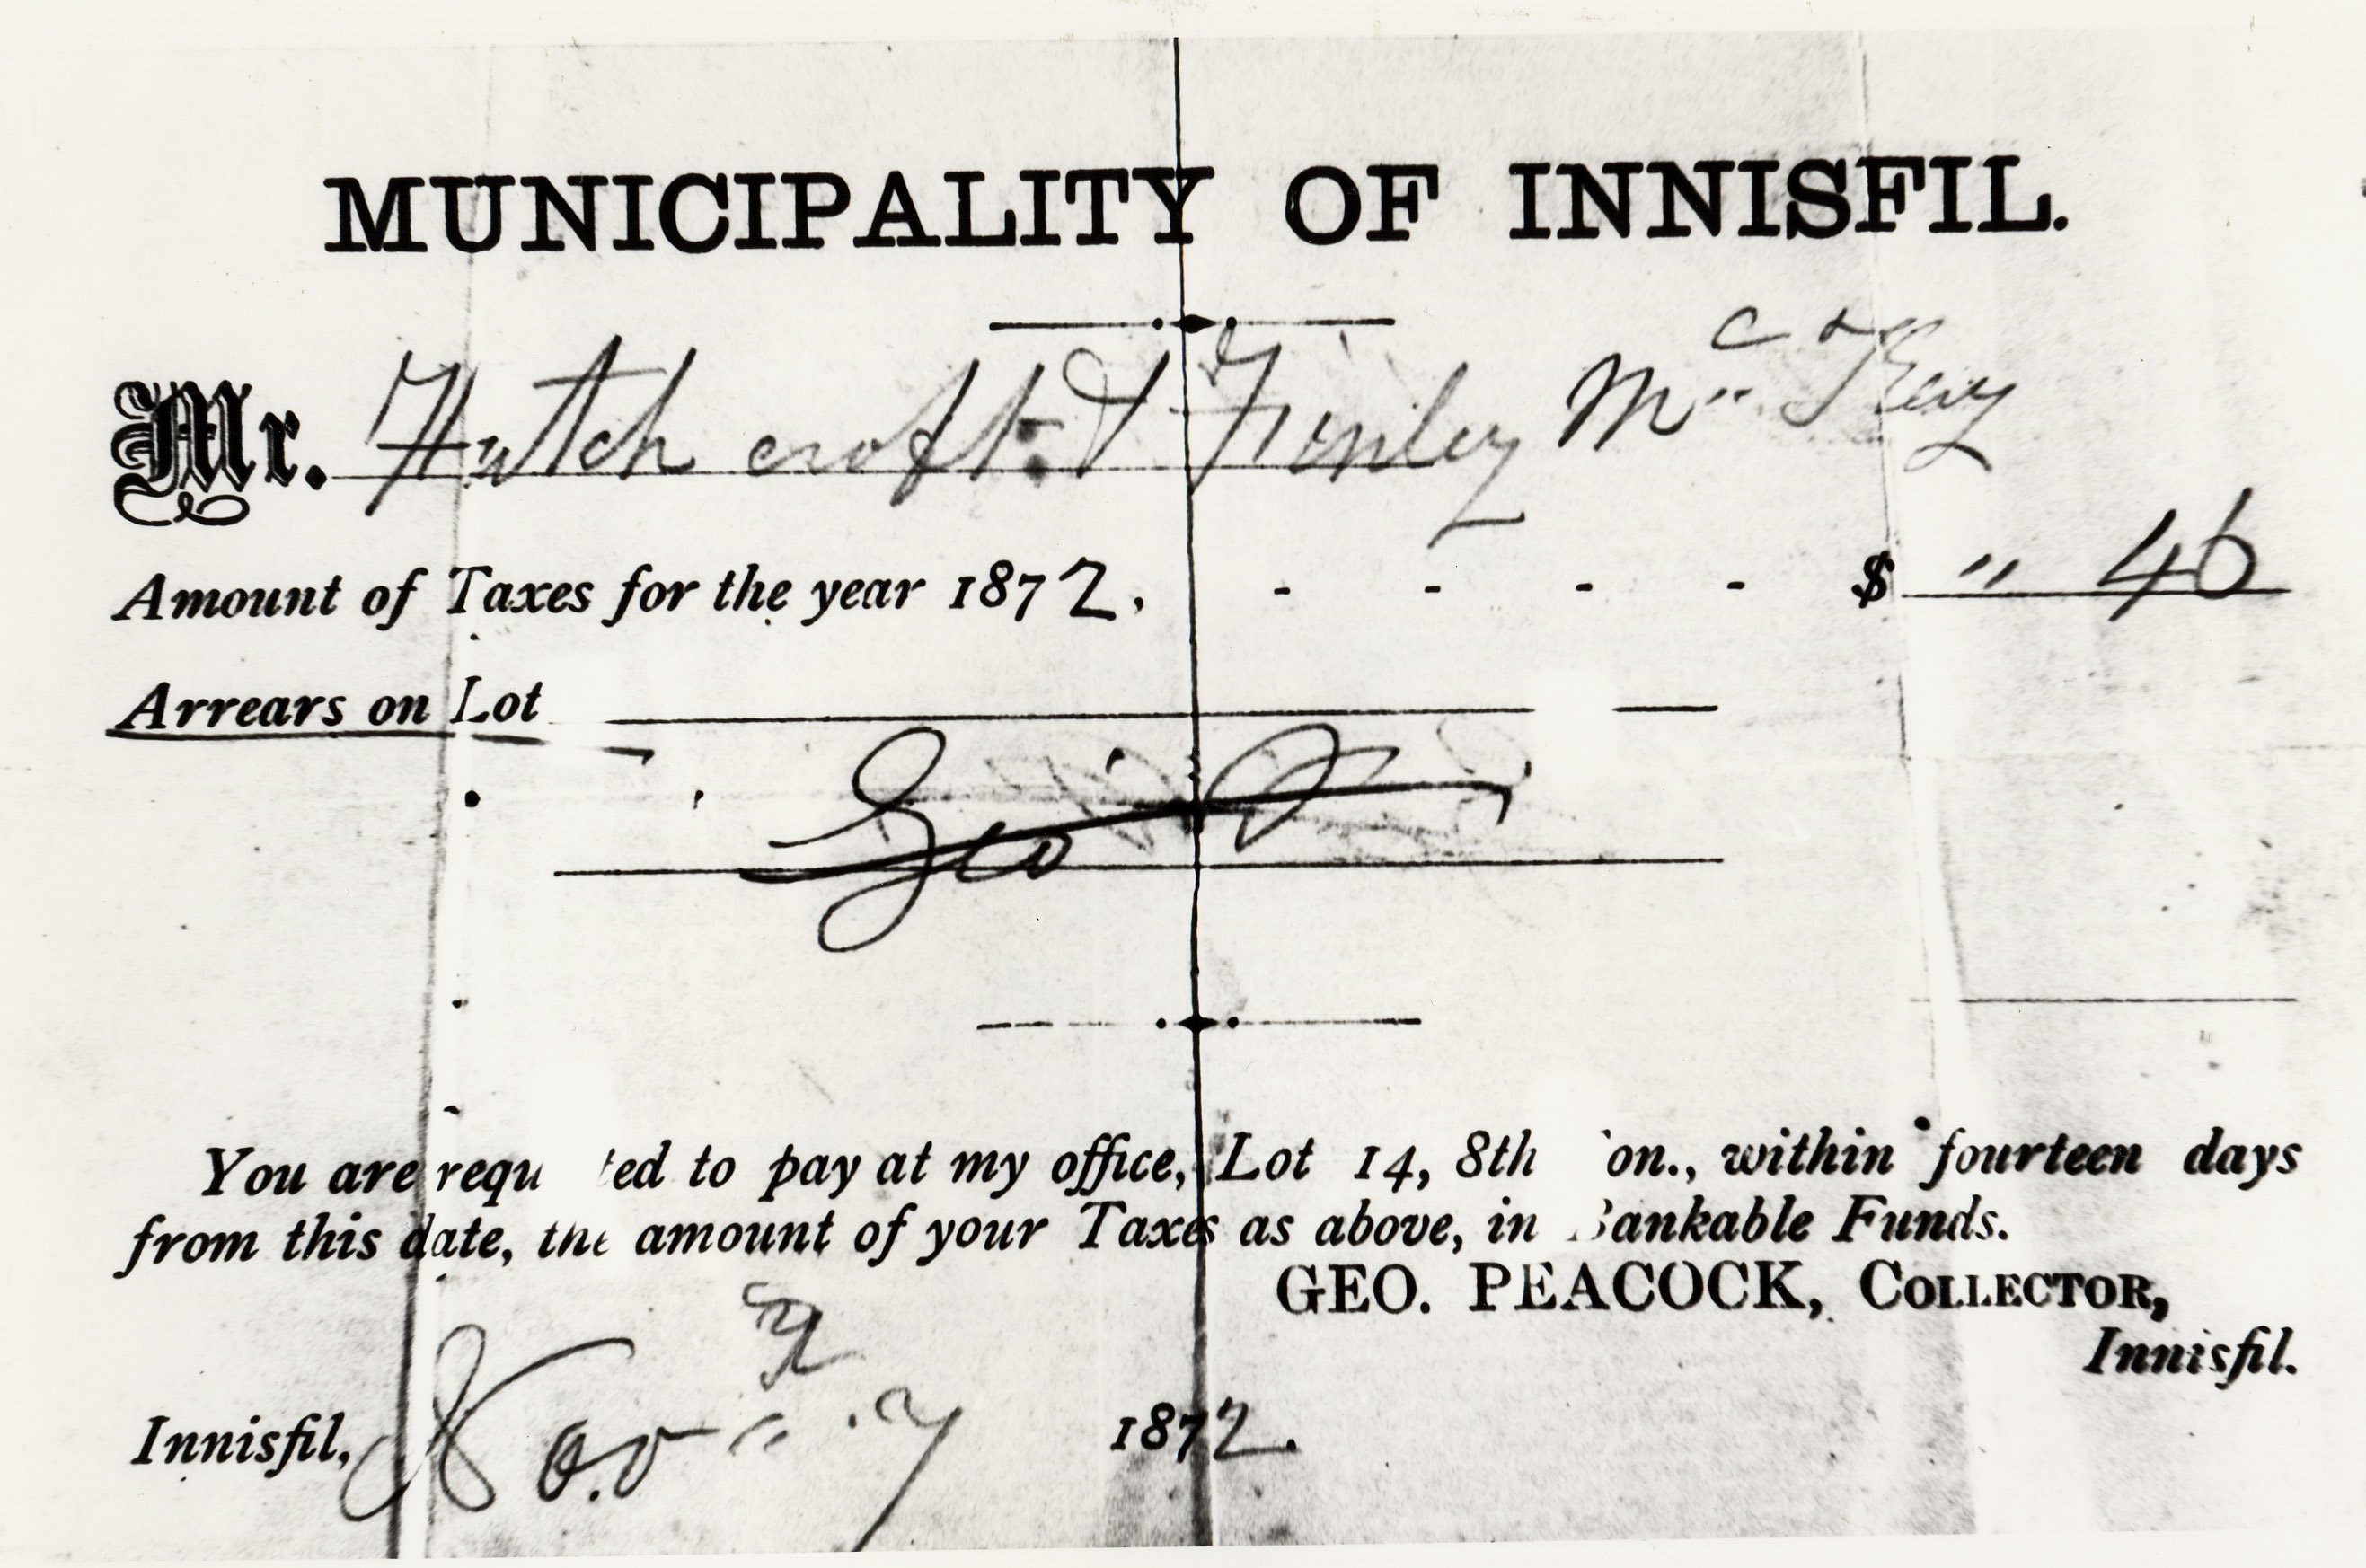 MUNICIPALITY OF INNISFIL.
Mr. Hutch croft. & Finley Mc Kay
Amount of Taxes for the year 1872, - - - - $ " 46
Arrears on Lot
Geo P
You are requ ted to pay at my office, Lot 14, 8th on., within fourteen days
from this date, the amount of your Taxes as above, in ankable Funds.
GEO. PEACOCK, COLLECTOR,
Innisfil.
Innisfil, Nov 7 1872.